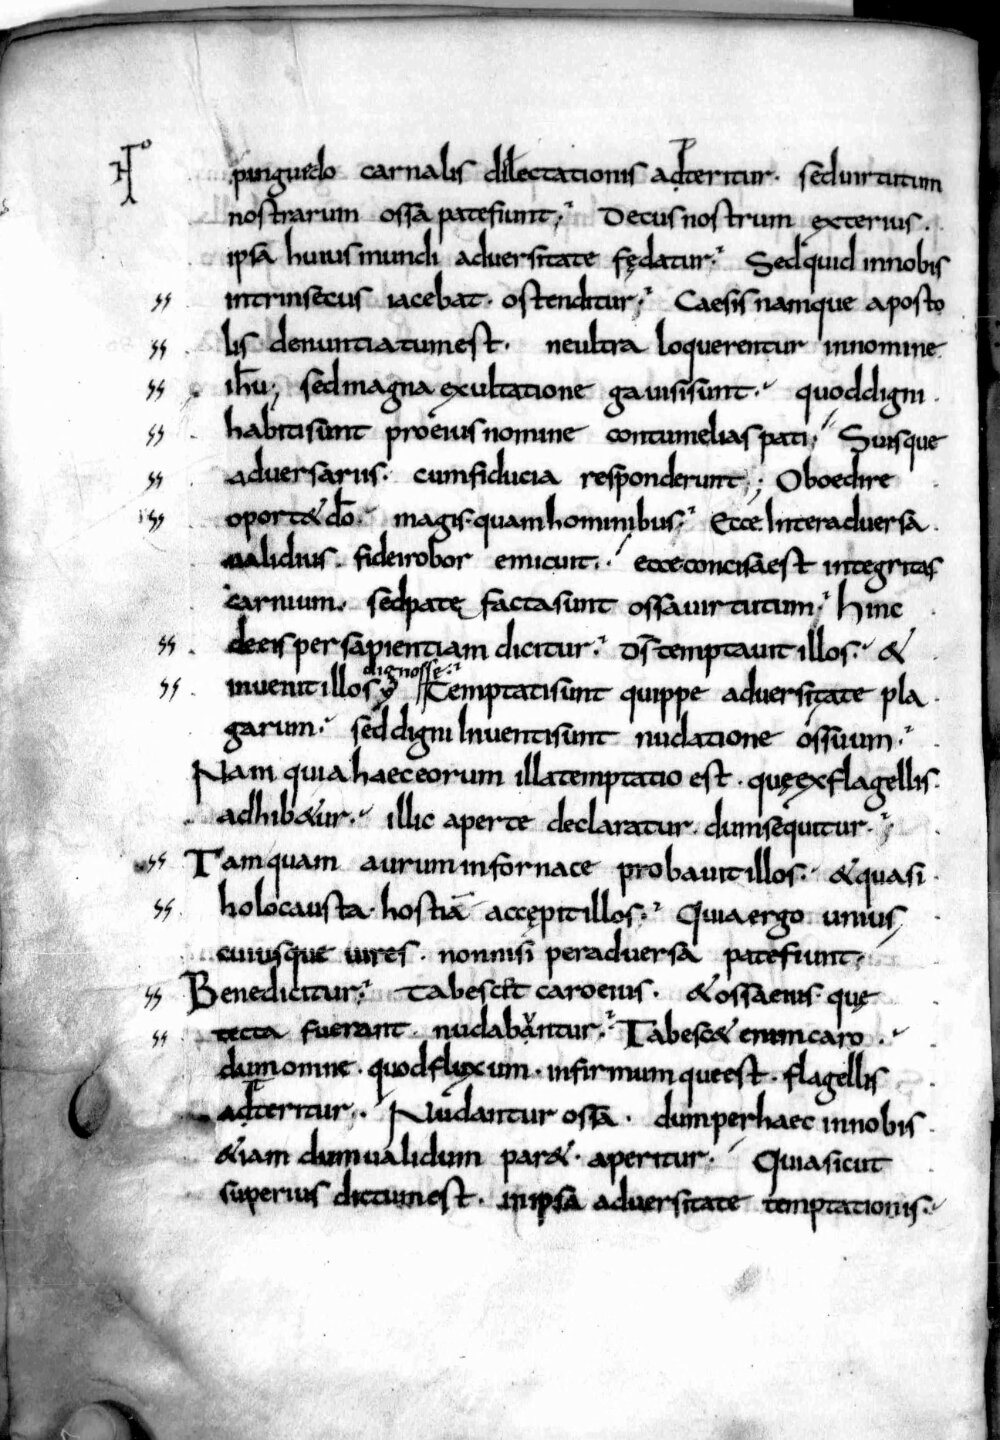 pinguedo carnalis dilectationis adteritur. sed uirtutum
nostrarum ossa patefiunt; Decus nostrum exterius.
ipsa huius mundi aduersitate fędatur; Sed quid in nobis
intrinsecus iacebat. ostenditur; Caesis namque aposto
lis denuntiatum est. ne ultra loquerentur in nomine
ihu; sed magna exultatione gauisi sunt. quod digni
habiti sunt pro eius nomine contumelias pati; Suisque
aduersariis. cum fiducia responderunt; Oboedire
oport& do. magis quam hominibus; Ecce Inter aduersa
ualidius fidei robor emicuit. ecce concisa est integritas
carnium. sed patę facta sunt ossa uirtutum; hinc
de eis per sapientiam dicitur; Ds temptauit illos. &
dignosse;
inuenit illos Temptati sunt quippe aduersitate pla
garum. sed digni Inuenti sunt nudatione ossuum;
Nam quia haec eorum illa temptatio est. quę ex flagellis
adhib&ur. illic aperte declaratur. dum sequitur;
Tamquam aurum in fornace probauit illos. & quasi
holocausta hostia accępit illos; Quia ergo unius
cuiusque uires. nonnisi per aduersa patefiunt;
Benedicitur; Tabescet caro eius. & ossa eius quę
tecta fuerant nudabuntur; Tabesc& enim caro
dum omne. quod fluxum. infirmumque est. flagellis
adteritur. Nudantur ossa. dum per haec in nobis
&iam dum ualidum par&. aperitur. Quia sicut
superius dictum est. in ipsa aduersitate temptationis.